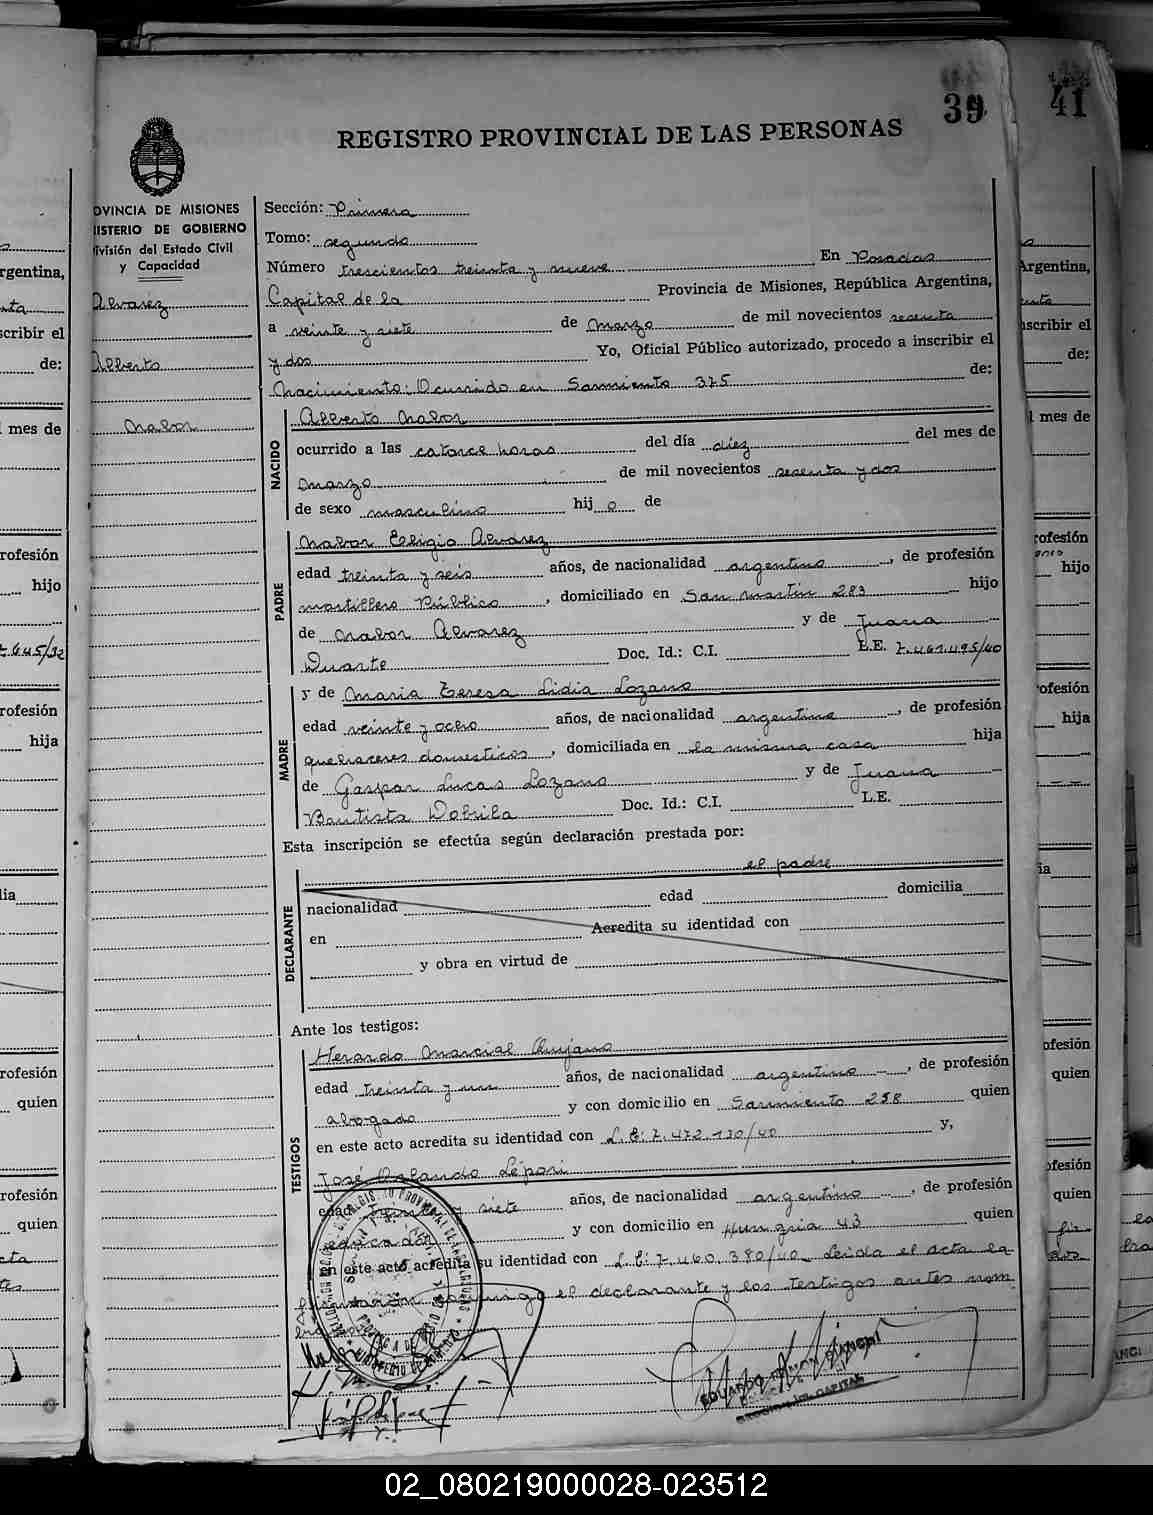 39
41
REGISTRO PROVINCIAL DE LAS PERSONAS
OVINCIA DE MISIONES
ISTERIO DE GOBIERNO
ivisión del Estado Civil
y Capacidad
Alvarez
Alberto
Nabor
Sección: Primera
Tomo: segundo
Número trescientos treinta y nueve En Posadas
Capital de la Provincia de Misiones, República Argentina,
a veinte y siete de Marzo de mil novecientos sesenta
y dos Yo, Oficial Público autorizado, procedo a inscribir el
Nacimiento: Ocurrido en Sarmiento 375 de:
NACIDO
Alberto Nabor
ocurrido a las catorce horas del día diez del mes de
Marzo de mil novecientos sesenta y dos
de sexo masculino hij o de
PADRE
Nabor Eligio Alvarez
edad treinta y seis años, de nacionalidad argentino, de profesión
martillero Público, domiciliado en San Martín 283 hijo
de Nabor Alvarez y de Juana
Duarte Doc. Id.: C.I. L.E. 7.461.495/40
MADRE
y de Maria Teresa Lidia Lozano
edad veinte y ocho años, de nacionalidad argentina, de profesión
quehaceres domesticos, domiciliada en la misma casa hija
de Gaspar Lucas Lozano y de Juana
Bautista Dobila Doc. Id.: C.I. L.E.
Esta inscripción se efectúa según declaración prestada por:
el padre
DECLARANTE
nacionalidad edad domicilia
en Acredita su identidad con
y obra en virtud de
Ante los testigos:
TESTIGOS
Herardo Marcial Quijano
edad treinta y un años, de nacionalidad argentino, de profesión
abogado y con domicilio en Sarmiento 258 quien
en este acto acredita su identidad con L.E: 7.472.130/40 y,
José Orlando Lépori
edad treinta y siete años, de nacionalidad argentino, de profesión
educador y con domicilio en Hungria 43 quien
en este acto acredita su identidad con L.E: 7.460.380/40 Leida el acta la
firmaron conmigo el declarante y los testigos antes nom
EDUARDO RAMON BIANCHI
CAPITAL
02_080219000028-023512